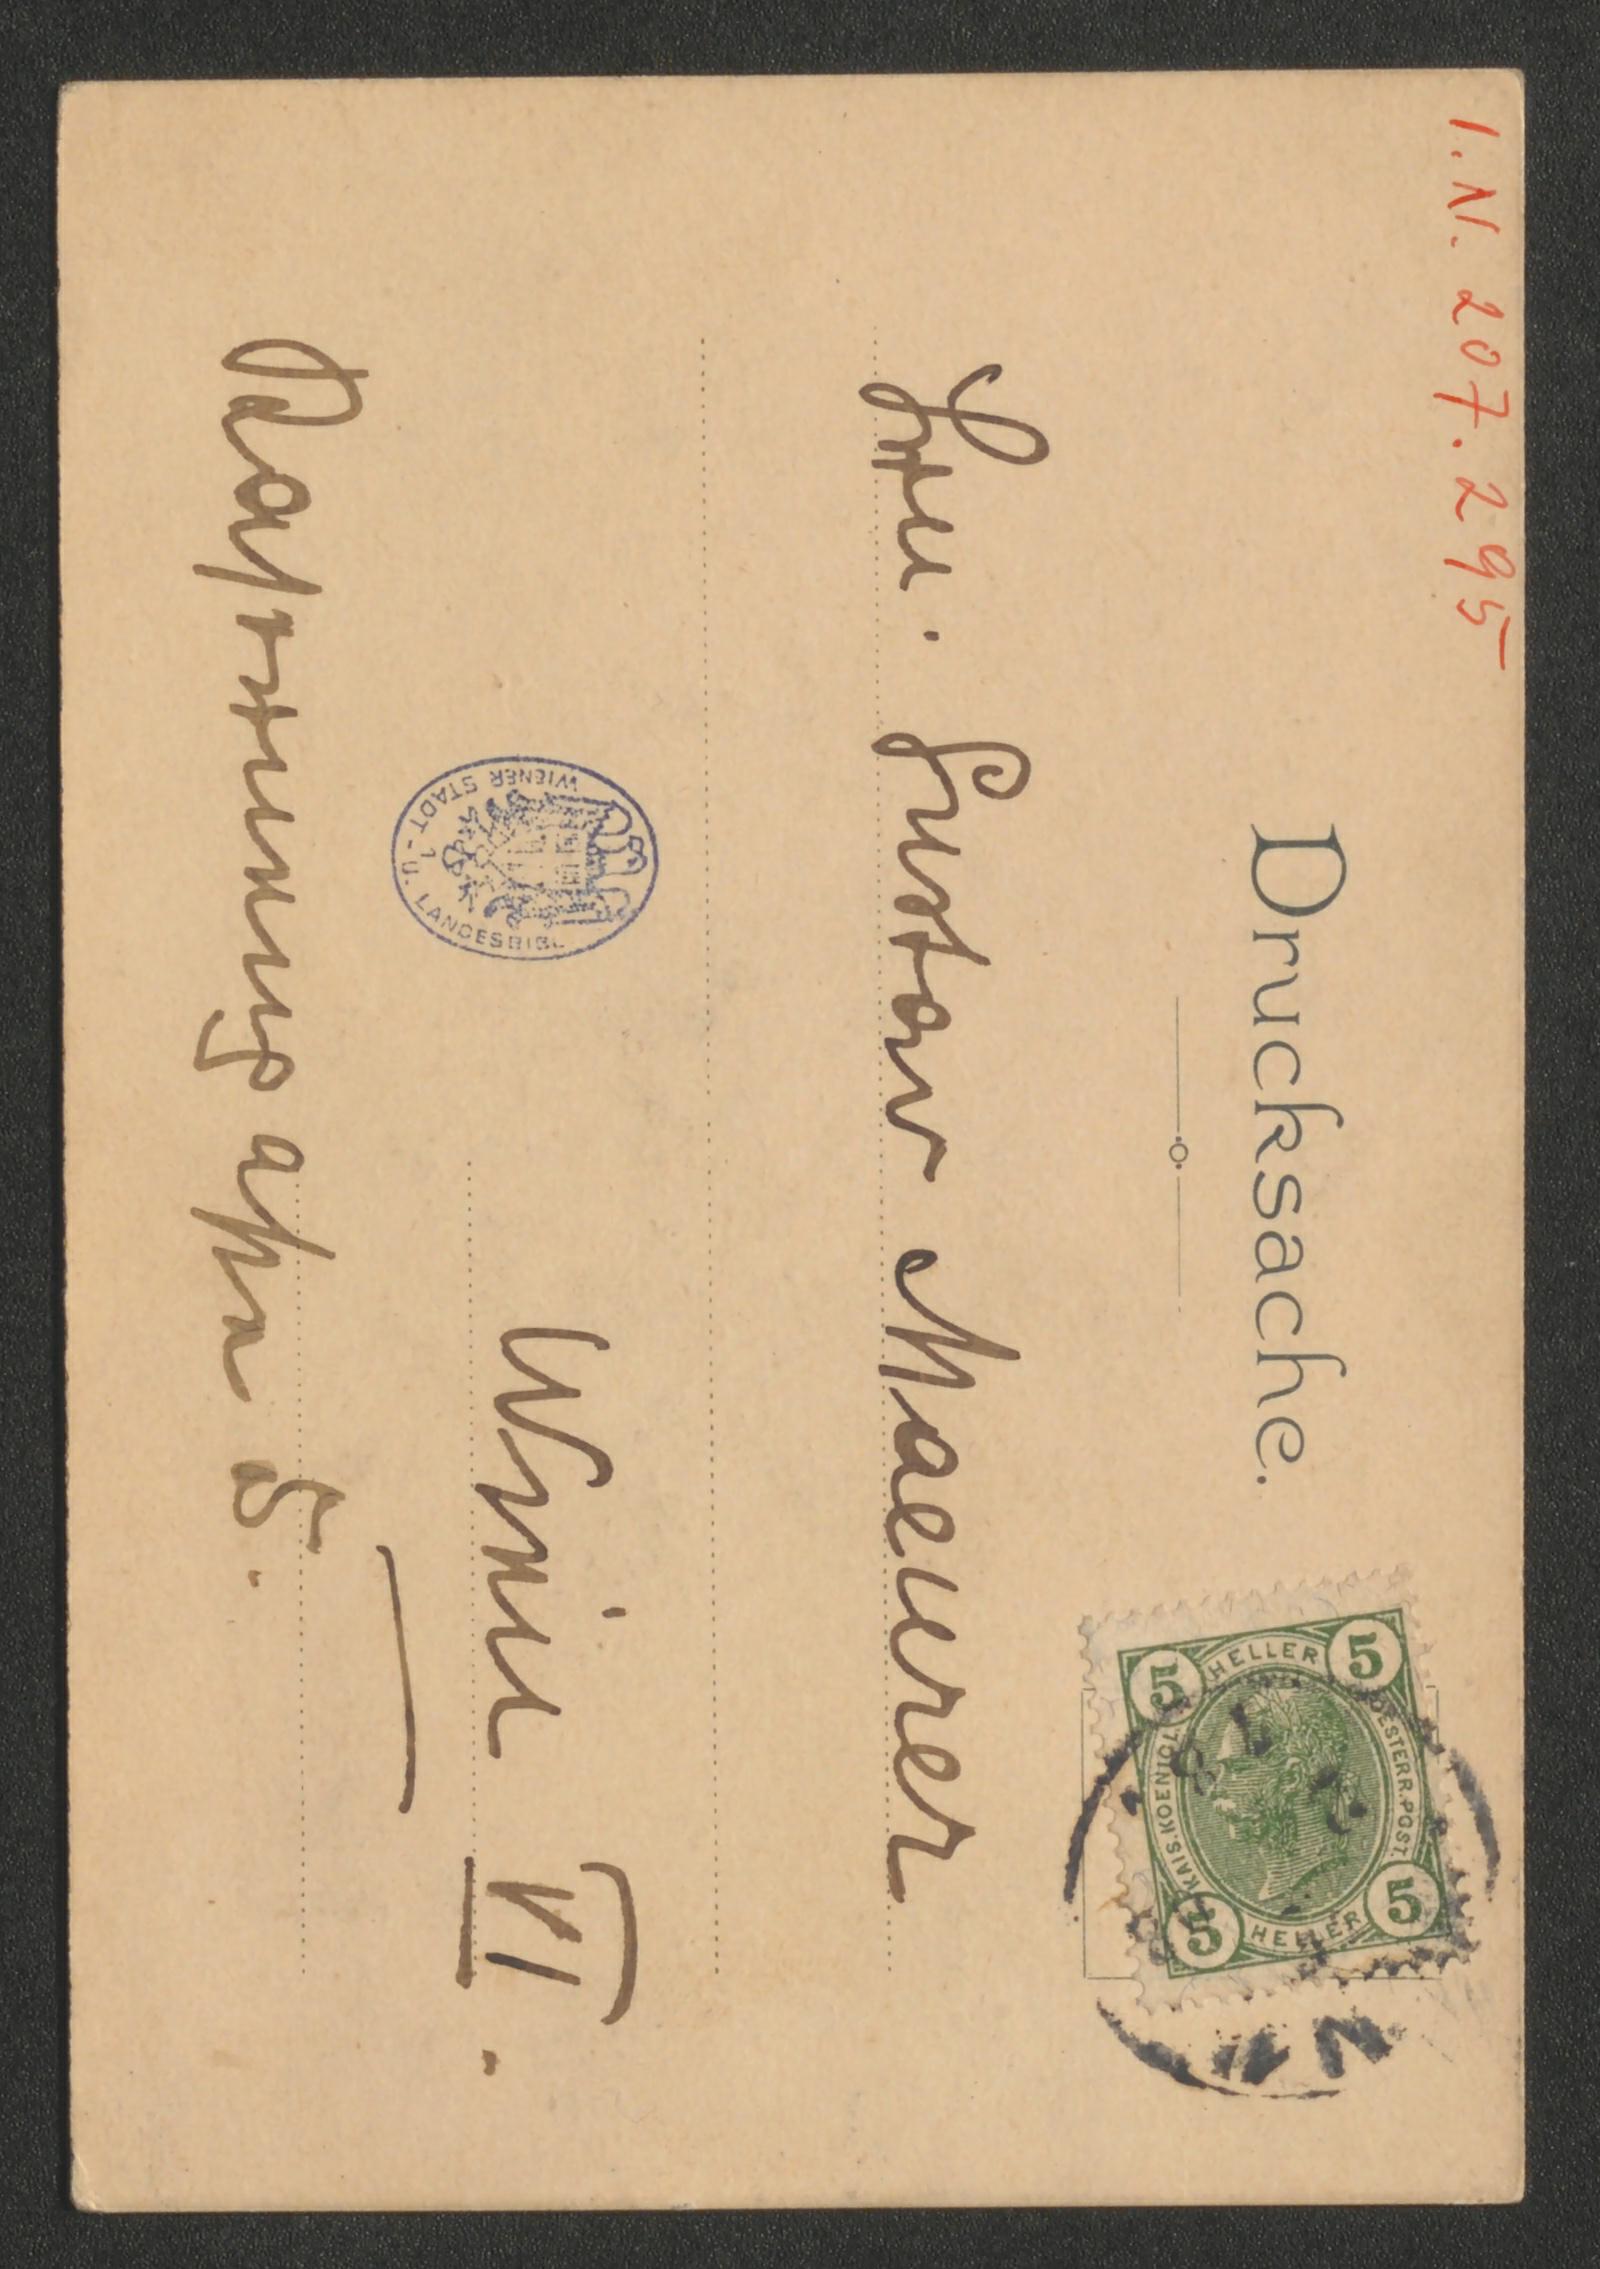 I. N. 207.295
Drucksache.
5 HELLER 5
OESTERR. POST.
KAIS. KOENIGL.
5 HELLER 5
Gustav Maeurer
WIENER STADT- U. LANDESBIBL
Wien VI.
5.